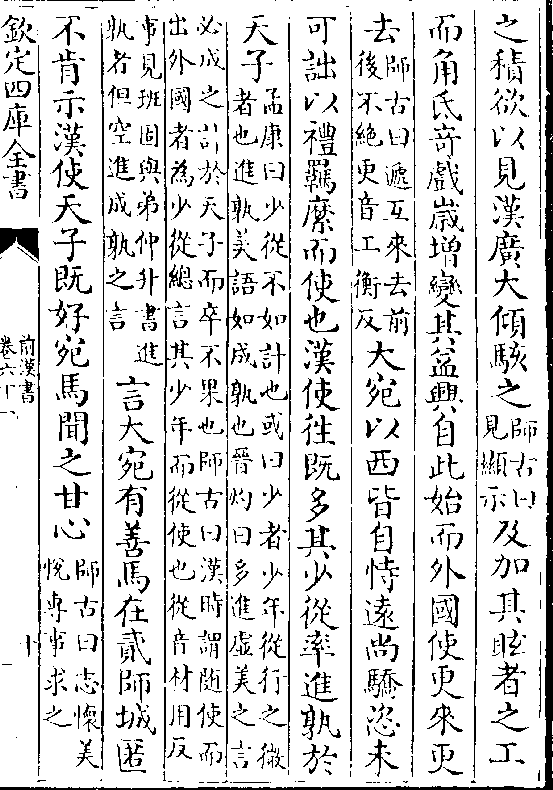 之積欲以見漢廣大傾駭之師古曰見顯示及加其眩者之工
而角氐奇戲嵗增變其益興自此始而外國使更來更
去師古曰遞互來去前後不絶更音工衡反大宛以西皆自恃逺尚驕恣未
可詘以禮羈縻而使也漢使徃既多其少從率進孰於
天子孟康曰少從不如計也或曰少者少年從行之微者也進孰美語如成孰也晉灼曰多進虚美之言
必成之計於天子而卒不果也師古曰漢時謂随使而出外國者為少從總言其少年而從使也從音材用反
事見班固與弟仲升書進孰者但空進成孰之言言大宛有善馬在貳師城匿
不肯示漢使天子既好宛馬聞之甘心師古曰志懷美悅專事求之
欽定四庫全書
前漢書
卷六十一
十